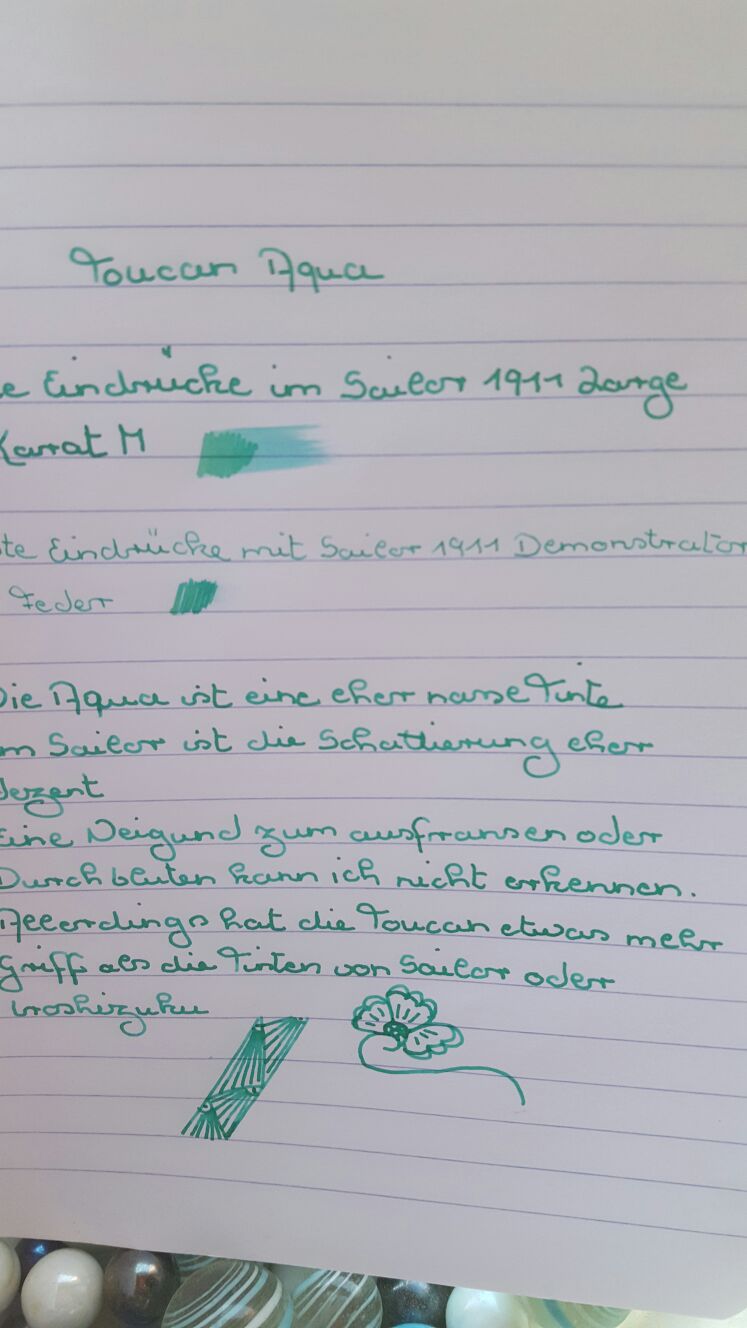 Toucan Aqua
e Eindrücke im Sailor 1911 Large
Karat M
te Eindrücke mit Sailor 1911 Demonstrator
Feder
Die Aqua ist eine eher nasse Tinte
m Sailor ist die Schattierung eher
dezent
Eine Neigund zum ausfransen oder
Durchbluten kann ich nicht erkennen.
Allerdings hat die Toucan etwas mehr
Griff als die Tinten von Sailor oder
Iroshizuku